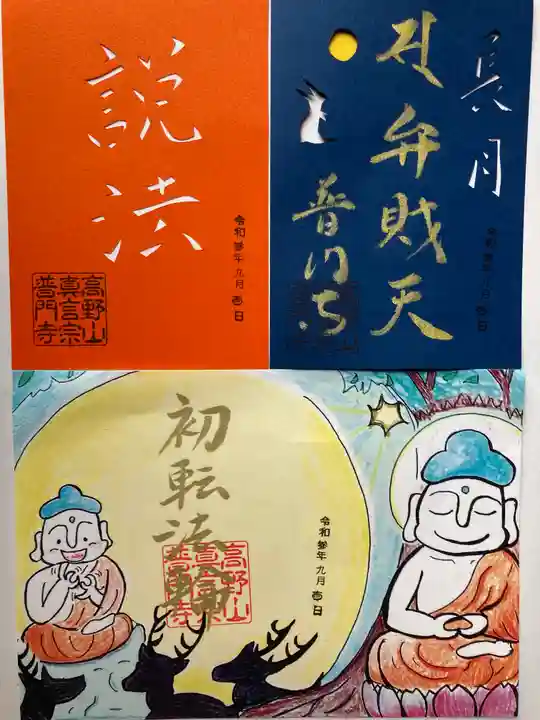 説法
令和参年九月壱日
高野山
真言宗
普門寺
真月
弁財天
普門寺
令和参年九月壱日
初転法輪
令和参年九月壱日
高野山
真言宗
普門寺